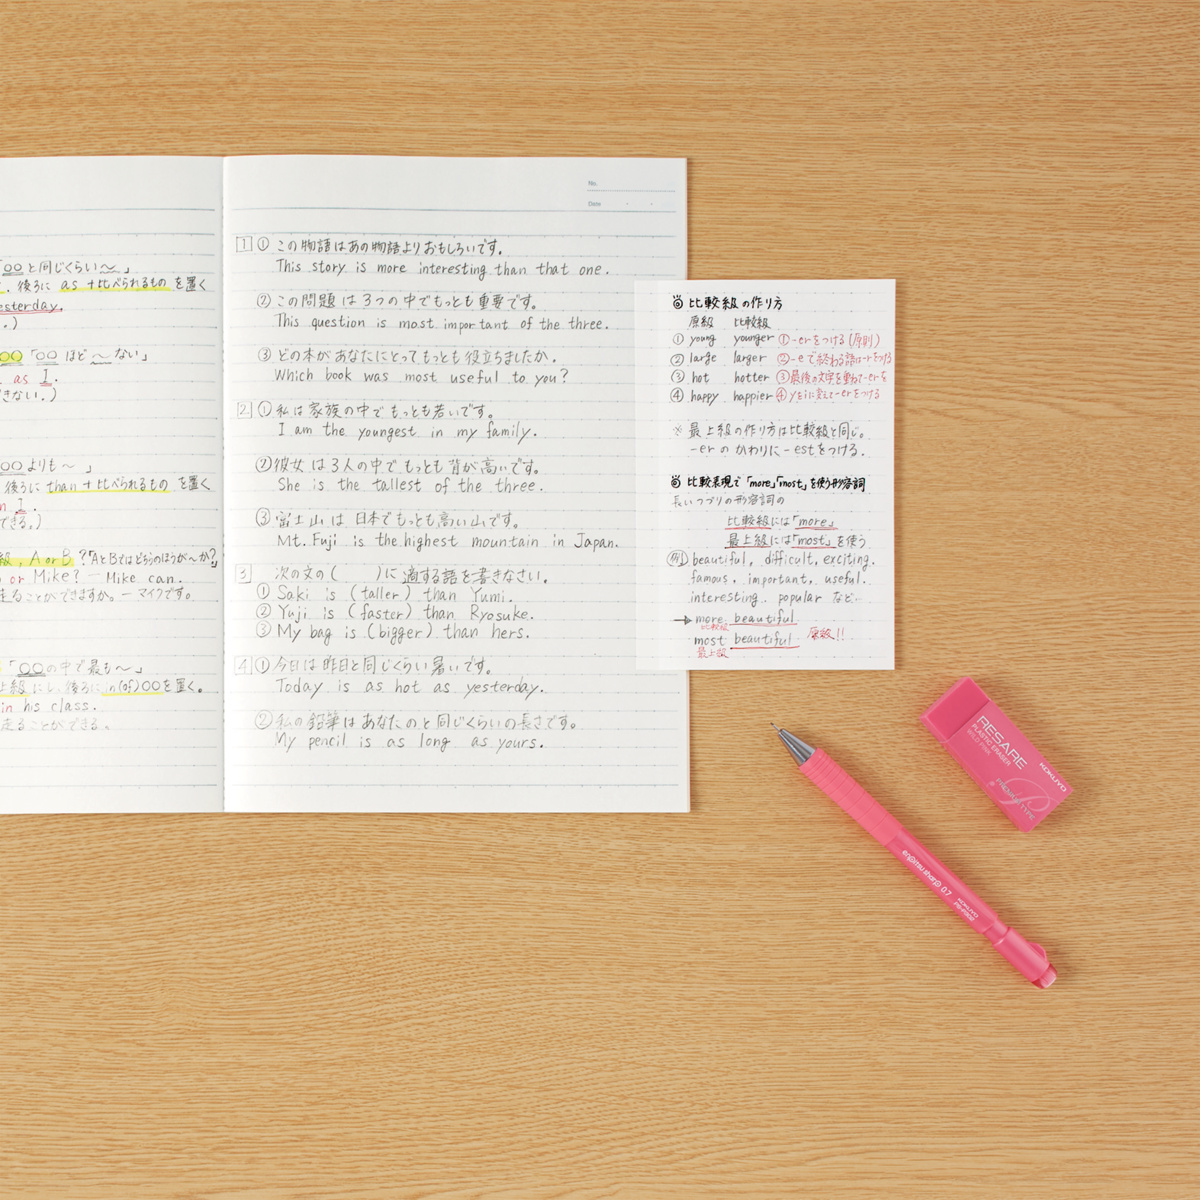 「○○と同じくらい〜」
後ろに as +比べられるもの を置く
esterday.
.)
○○「○○ ほど 〜ない」
as I.
きない.)
○○よりも〜 」
後ろに than + 比べられるもの を置く
n I.
できる。)
級, A or B ?「AとBではどちらのほうが〜か?」
or Mike? — Mike can.
走ることができますか。— マイクです。
「○○の中で最も〜」
上級 にし、後ろに in(of)○○を置く。
in his class.
走ることができる。
No.
Date ・ ・
1 ① この物語はあの物語よりおもしろいです。
This story is more interesting than that one.
② この問題は3つの中でもっとも重要です。
This question is most important of the three.
③ どの本があなたにとってもっとも役立ちましたか.
Which book was most useful to you?
2. ① 私は家族の中でもっとも若いです。
I am the youngest in my family.
② 彼女は3人の中でもっとも背が高いです。
She is the tallest of the three.
③ 富士山は日本でもっとも高い山です。
Mt. Fuji is the highest mountain in Japan.
3 次の文の( )に適する語を書きなさい。
① Saki is (taller) than Yumi.
② Yuji is (faster) than Ryosuke.
③ My bag is (bigger) than hers.
4 ① 今日は昨日と同じくらい暑いです。
Today is as hot as yesterday.
② 私の鉛筆はあなたのと同じくらいの長さです。
My pencil is as long as yours.
比較級の作り方
原級 比較級
① young younger ①-erをつける(原則)
② large larger ②-eで終わる語は-rをつける
③ hot hotter ③最後の文字を重ねて-erを
④ happy happier ④yをiに変えて-erをつける
※ 最上級の作り方は比較級と同じ。
-erのかわりに-estをつける.
比較表現で「more」「most」を使う形容詞
長いつづりの形容詞の
比較級には「more」
最上級には「most」を使う
例) beautiful, difficult, exciting,
famous, important, useful,
interesting, popular など..
→ more beautiful 原級!!
比較級
most beautiful
最上級
RESARE
PLASTIC ERASER
WILD PINK
KOKUYO
PREMIUM TYPE
enpitsu sharp 0.7
KOKUYO